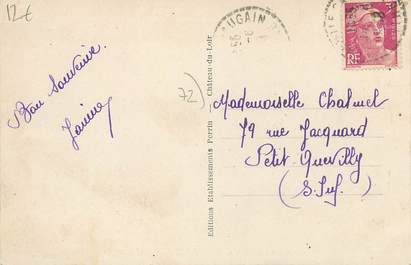 12€
Bon Souvenir
72)
Editions Etablissements Perrin - Château-du-Loir
UGAIN
RF
Mademoiselle Chalmel
79 rue Jacquard
Petit-Quevilly
(S. Inf.)